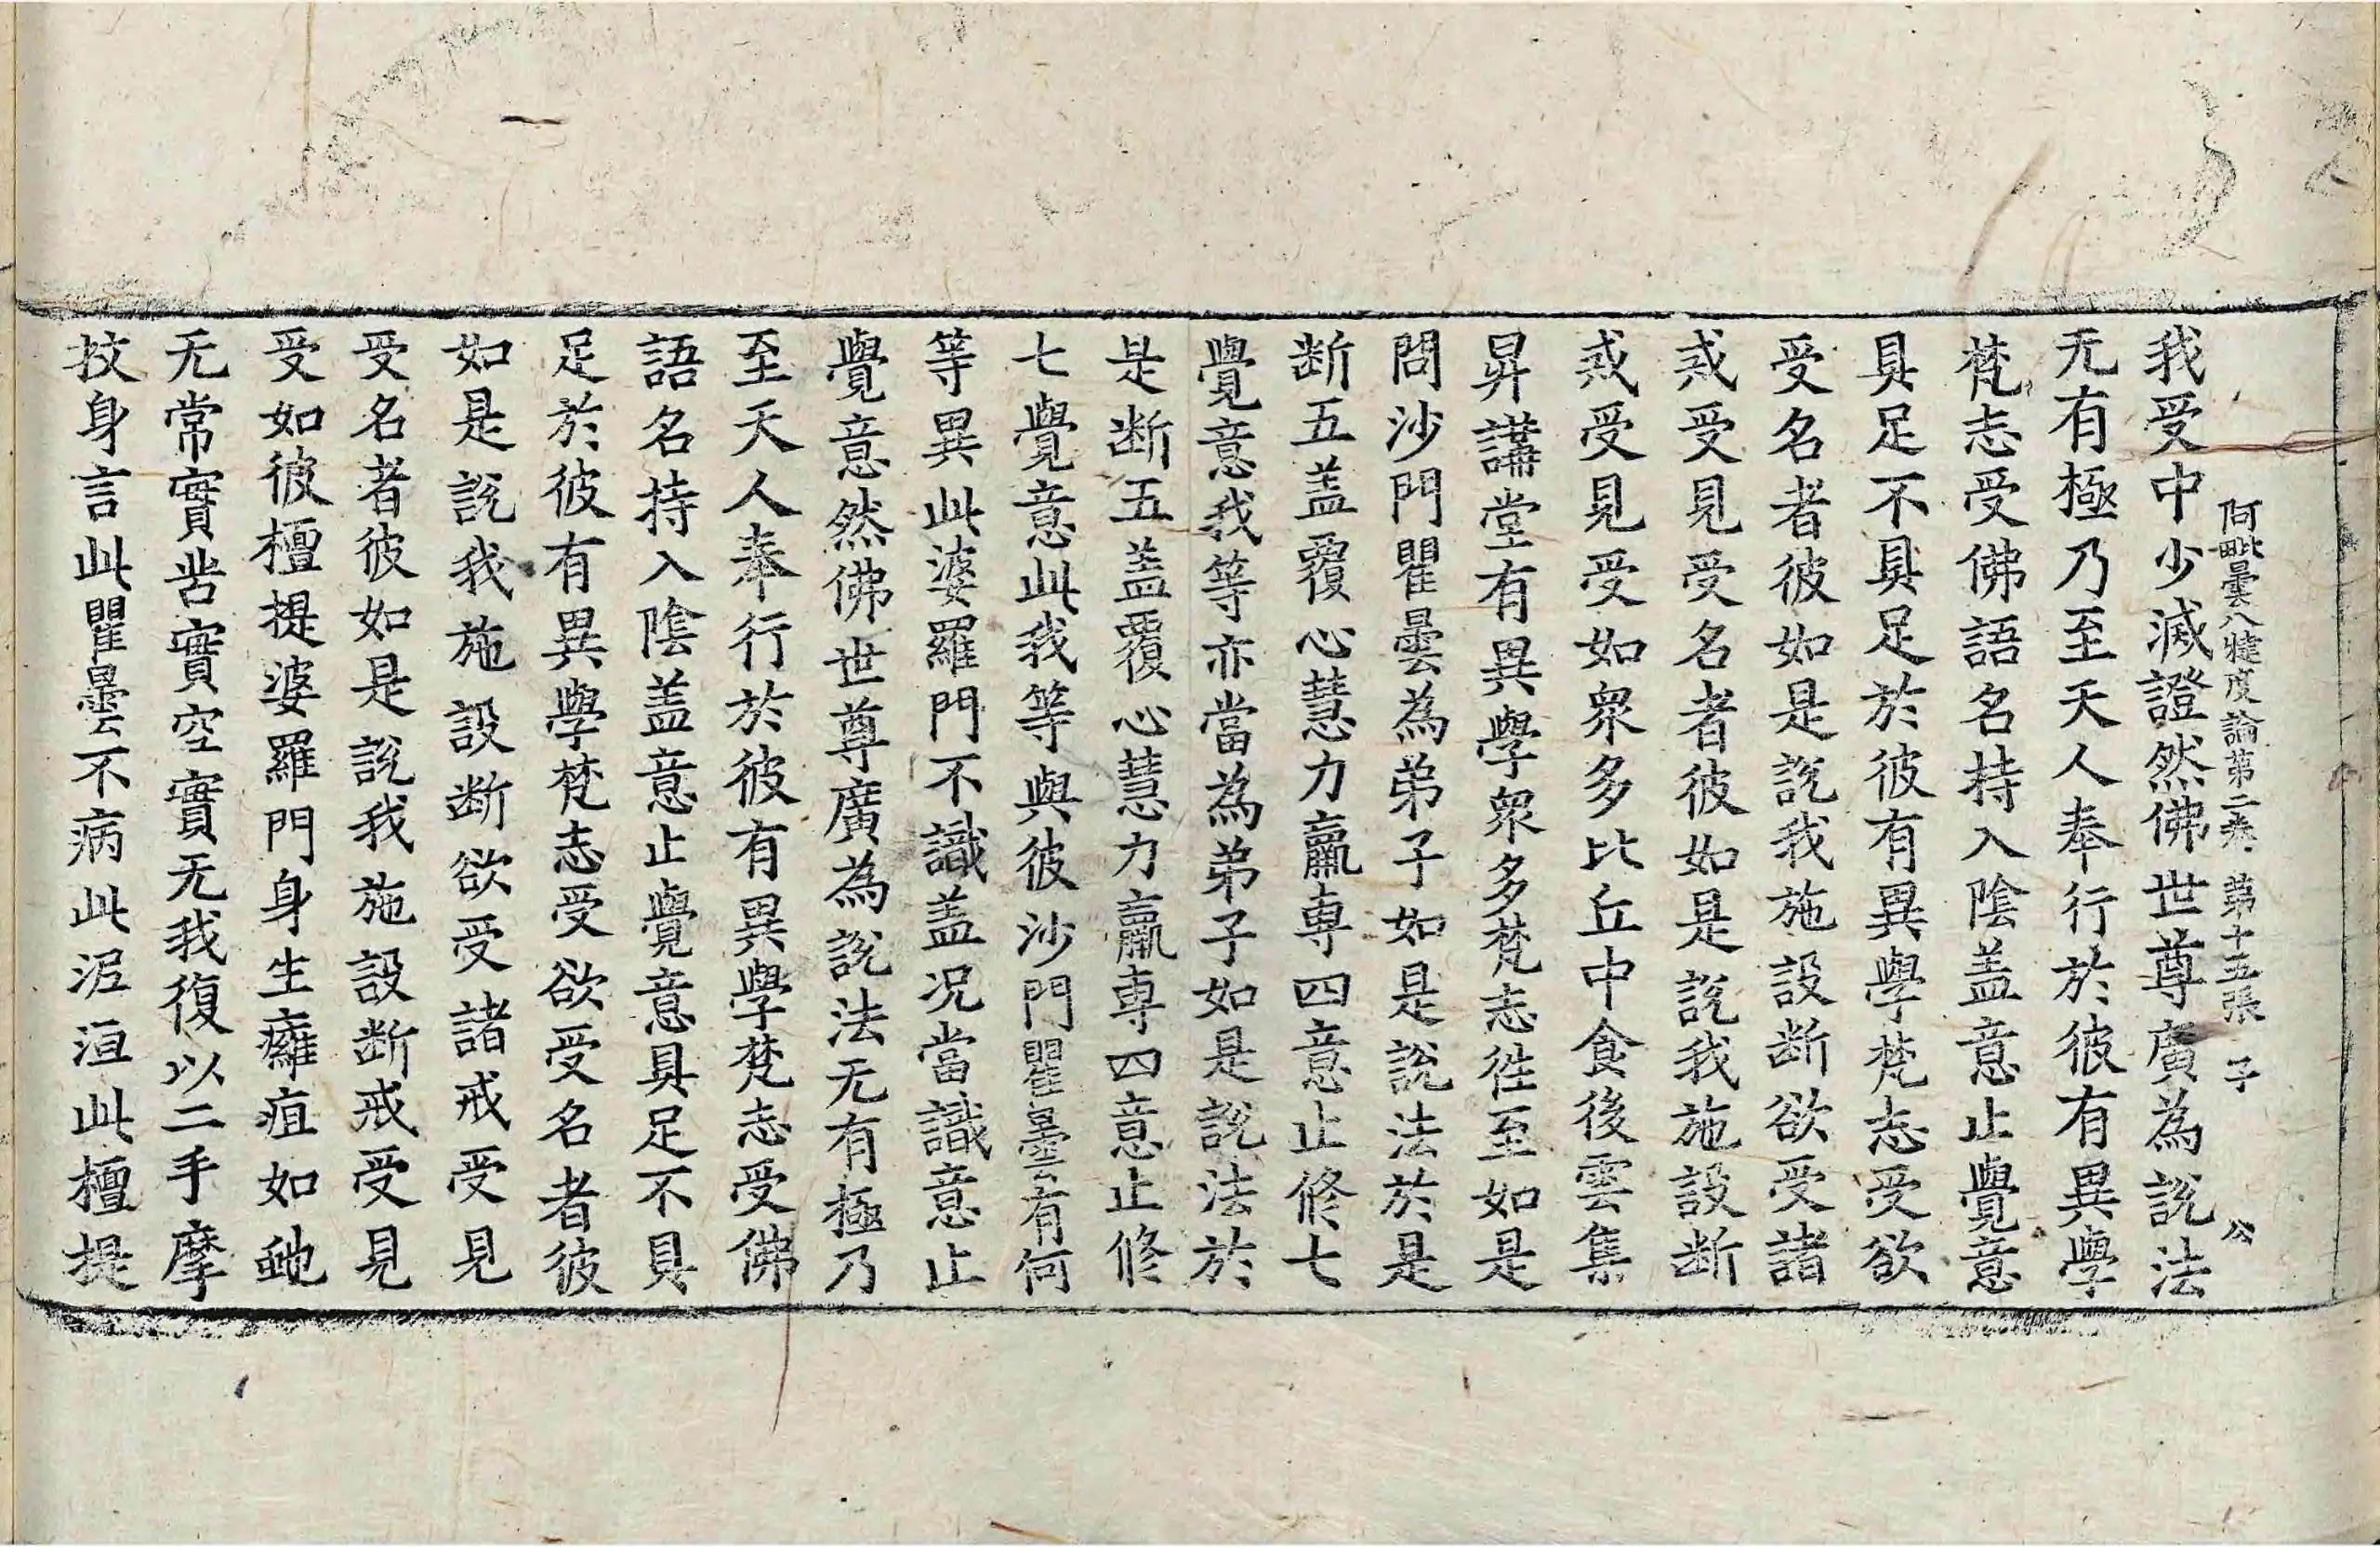 阿毗曇八犍度論第二卷 第十五張 子 公
我受中少減證然佛世尊廣為說法
无有極乃至天人奉行於彼有異學
梵志受佛語名持入陰盖意止覺意
具足不具足於彼有異學梵志受欲
受名者彼如是說我施設断欲受諸
戒受見受名者彼如是說我施設断
戒受見受如衆多比丘中食後雲集
昇講堂有異學衆多梵志徃至如是
問沙門瞿曇為弟子如是說法於是
断五盖覆心慧力羸専四意止修七
覺意我等亦當為弟子如是說法於
是断五盖覆心慧力羸専四意止修
七覺意此我等與彼沙門瞿曇有何
等異此婆羅門不識盖况當識意止
覺意然佛世尊廣為說法无有極乃
至天人奉行於彼有異學梵志受佛
語名持入陰盖意止覺意具足不具
足於彼有異學梵志受欲受名者彼
如是說我施設断欲受諸戒受見
受名者彼如是說我施設断戒受見
受如彼檀提婆羅門身生癰疽如虵
无常實苦實空實无我復以二手摩
抆身言此瞿曇不病此泥洹此檀提